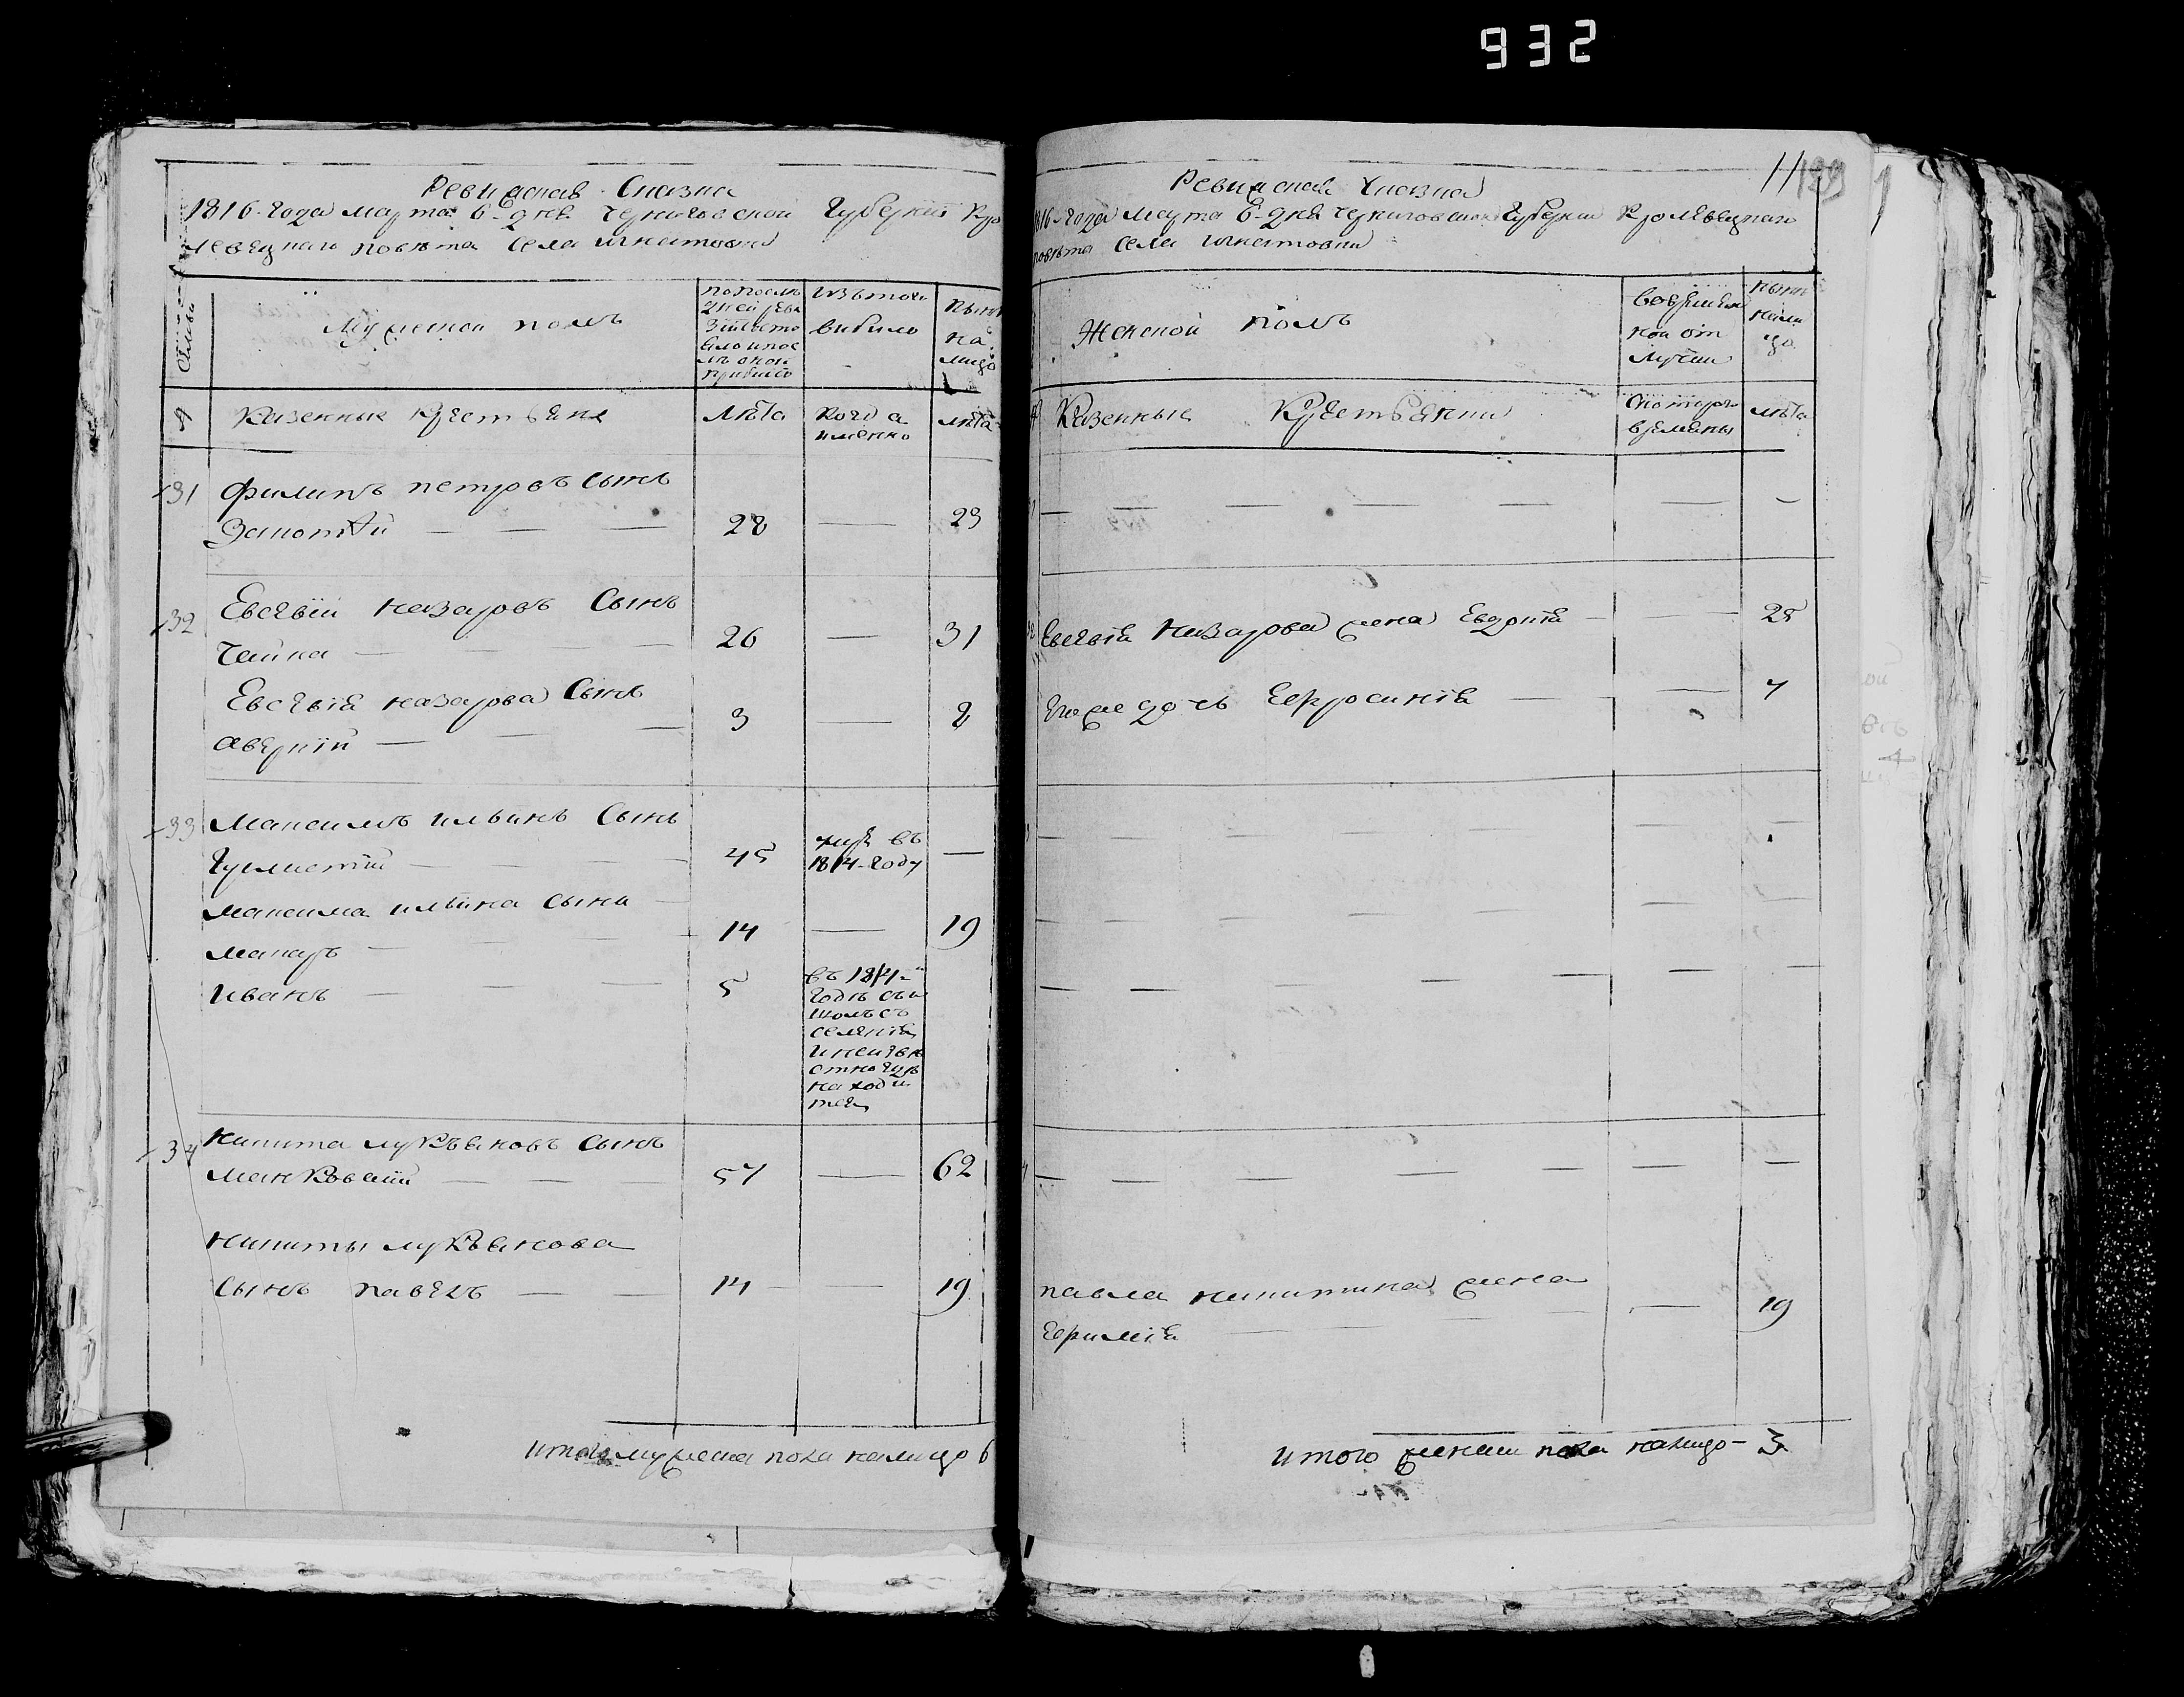 932
Ревизская Сказка
1816 года марта 6 дня Черниговской Губернии Кро
левецкаго повѣта села игнатовки
Семьи
Мужеской полъ
по послѣ
дней реви
зіи состо
яло и пос
лѣ оной
прибыло
изъ того
выбыло
нынѣ
на
лицо
казенные крестьяне
лѣта
когда
именно
лѣта
31
филипъ петровъ сынъ
28
—
29
32
Евсѣвій назаровъ сынъ
Чайка
26
—
31
Евсѣвія назарова сынъ
аверкій
3
—
8
33
Максимъ ильинъ сынъ
45
въ
1814 году
—
максима ильина сыны
макаръ
14
—
19
иванъ
5
въ 1814
годѣ
селенія
неизвѣ
стно гдѣ
находи
тся
34
никита лукьяновъ сынъ
57
—
62
никиты лукьянова
сынъ павелъ
14
—
19
итого мужеска пола налицо 6
Ревизская Сказка
199
1816 года марта 6 дня черниговской губернии кролевецкаго
повѣта села игнатовки
Женской полъ
во времян
ной от
лучки
нынѣ
нали
цо
Казенные Крестьянки
съ котораго
времяны
лѣта
Евсѣвія назарова жена Евдокія
—
25
Его же дочь Ефросинія
—
7
павла никитина жена
Ефимія
—
19
итого женска пола налицо - 3